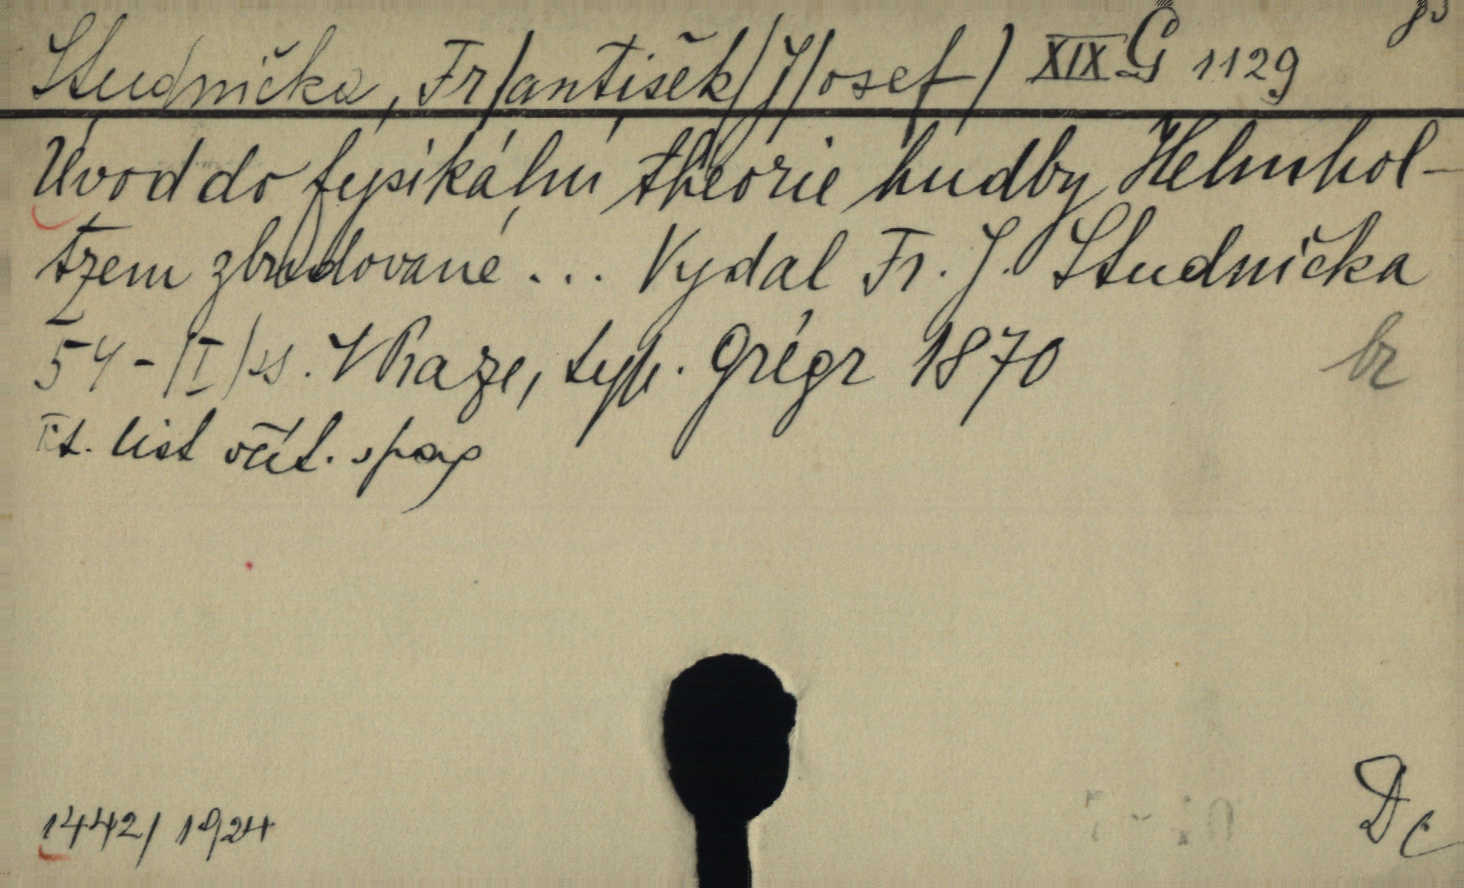 Studnička, Fr/antišek/ J/osef/ XIX G 1129
Úvod do fysikální theorie hudby Helmhol-
tzem zbudované... Vydal Fr. J. Studnička
54-/I/ ss. V Praze, typ. Grégr 1870
br
t. list včít. v pag
1442/1924